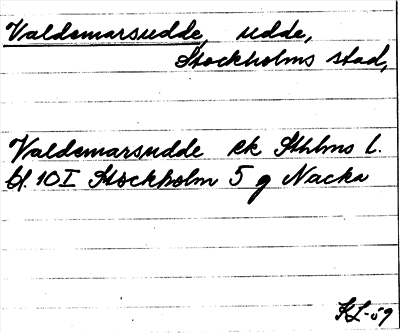 Valdemarsudde, udde,
Stockholms stad,
Valdemarsudde ek Sthlms l.
bl. 10I Stockholm 5 g Nacka
KL-59